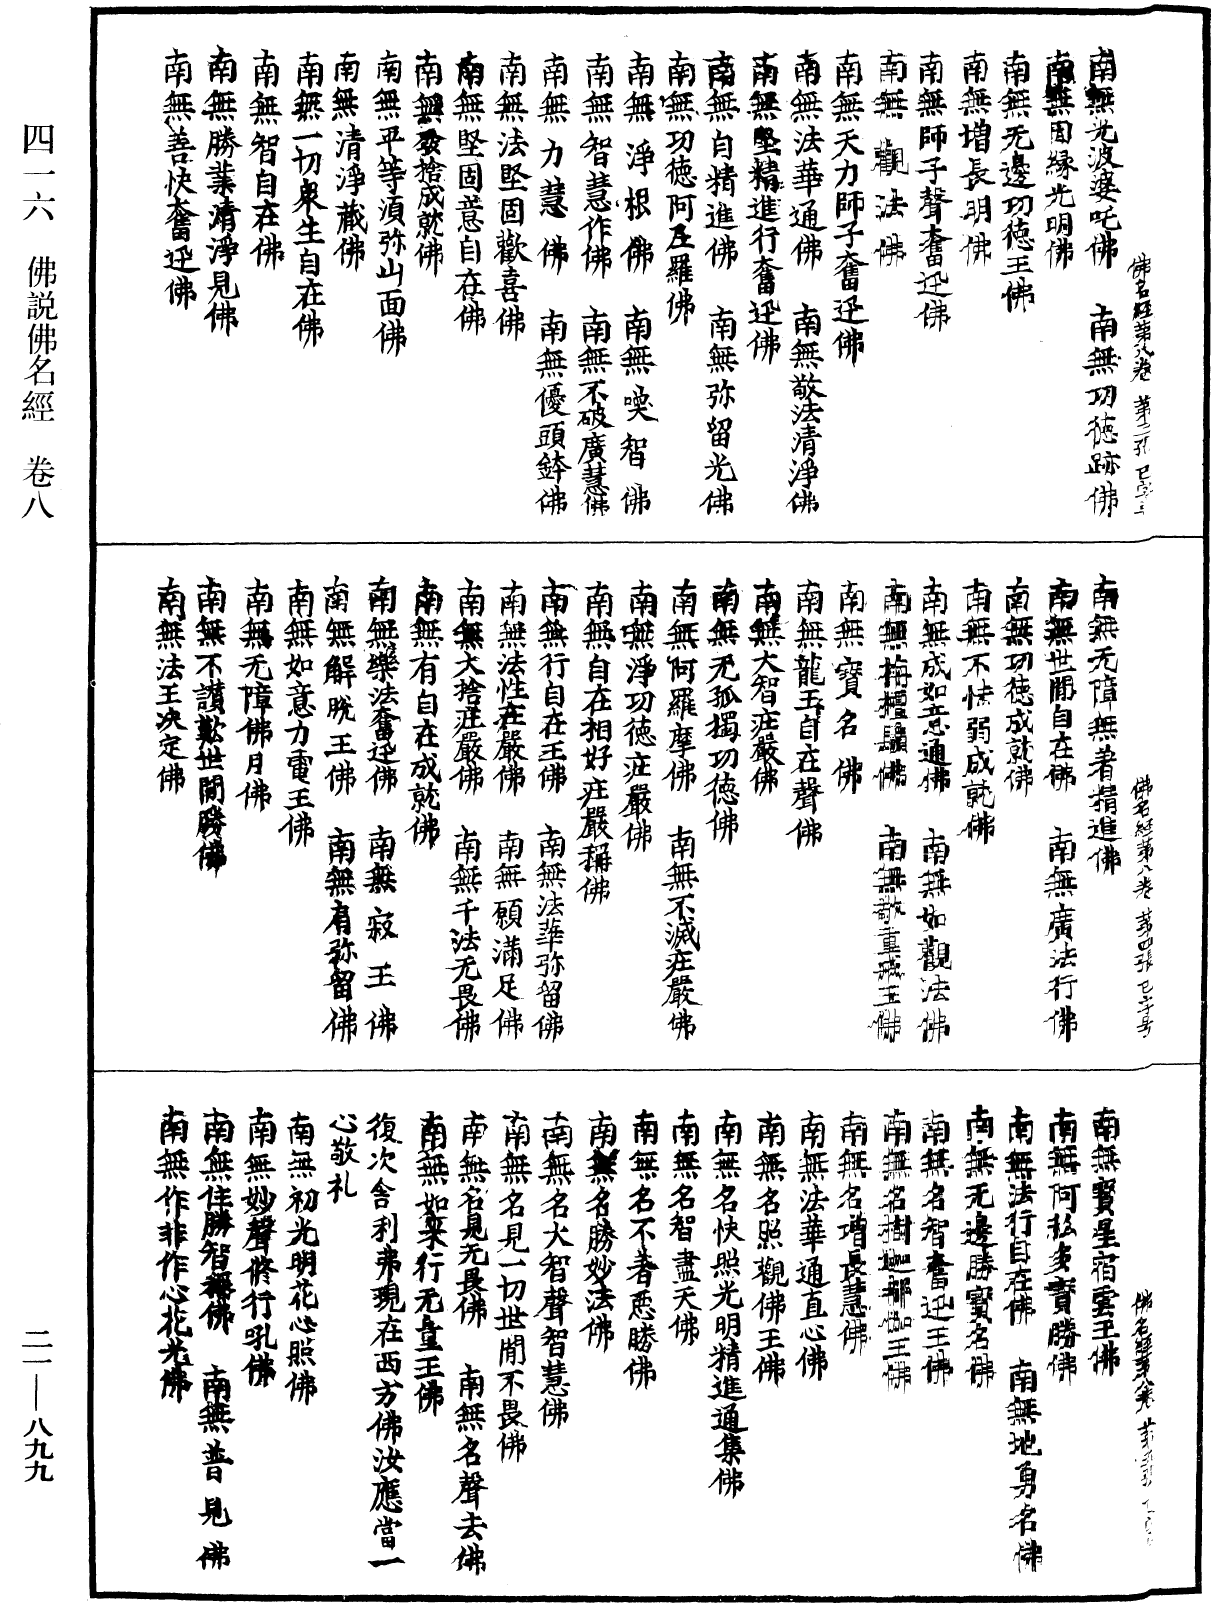 南無光波婆吒佛　南無功德跡佛
南無因緣光明佛
南無无邊功德王佛
南無增長明佛
南無師子聲奮迅佛
南無觀法佛
南無天力師子奮迅佛
南無法華通佛　南無敬法清淨佛
南無堅精進行奮迅佛
南無自精進佛　南無弥留光佛
南無功德阿尼羅佛
南無淨根佛　南無喚智佛
南無智慧作佛　南無不破廣慧佛
南無力慧佛　南無優頭鉢佛
南無法堅固歡喜佛
南無堅固意自在佛
南無發捨成就佛
南無平等湏弥山面佛
南無清淨藏佛
南無一切衆生自在佛
南無智自在佛
南無勝業清淨見佛
南無善快奮迅佛
佛名經第八卷　第三張　已字号
南無无障無著精進佛
南無世間自在佛　南無廣法行佛
南無功德成就佛
南無不怯弱成就佛
南無成如意通佛　南無如觀法佛
南無栴檀佛　南無敬重戒王佛
南無寶名佛
南無龍王自在聲佛
南無大智㽵嚴佛
南無无孤獨功德佛
南無阿羅摩佛　南無不滅㽵嚴佛
南無淨功德㽵嚴佛
南無自在相好㽵嚴稱佛
南無行自在王佛　南無法華弥留佛
南無法性㽵嚴佛　南無願滿足佛
南無大捨㽵嚴佛　南無千法无畏佛
南無有自在成就佛
南無樂法奮迅佛　南無寂王佛
南無解脫王佛　南無有弥留佛
南無如意力電王佛
南無无障佛月佛
南無不讃歎世間勝佛
南無法王决定佛
佛名經第八卷　第四張　已字号
南無寶星宿雲王佛
南無阿私多寶勝佛
南無法行自在佛　南無地勇名佛
南無无邊勝寶名佛
南無名智奮迅王佛
南無名樹迦那伽王佛
南無名增長慧佛
南無法華通直心佛
南無名照觀佛王佛
南無名快照光明精進通集佛
南無名智盡天佛
南無名不著惡勝佛
南無名勝妙法佛
南無名大智聲智慧佛
南無名見一切世間不畏佛
南無名見无畏佛　南無名聲去佛
南無如來行无量王佛
復次舍利弗現在西方佛汝應當一
心敬礼
南無初光明花心照佛
南無妙聲修行吼佛
南無住勝智稱佛　南無普見佛
南無作非作心花光佛
佛名經第八卷
四一六　佛説佛名經　卷八
二一——八九九